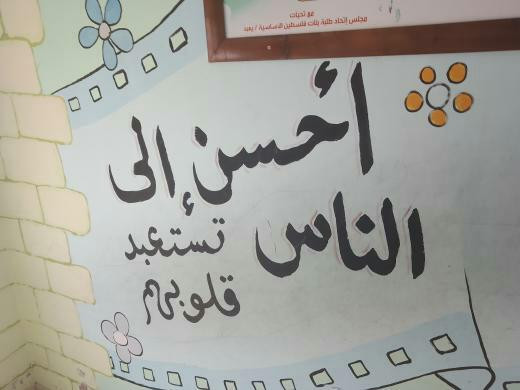 مع تحيات
مجلس إتحاد طلبة بنات فلسطين الاساسية / يعبد
أحسن إلى
الناس تستعبد
قلوبهم